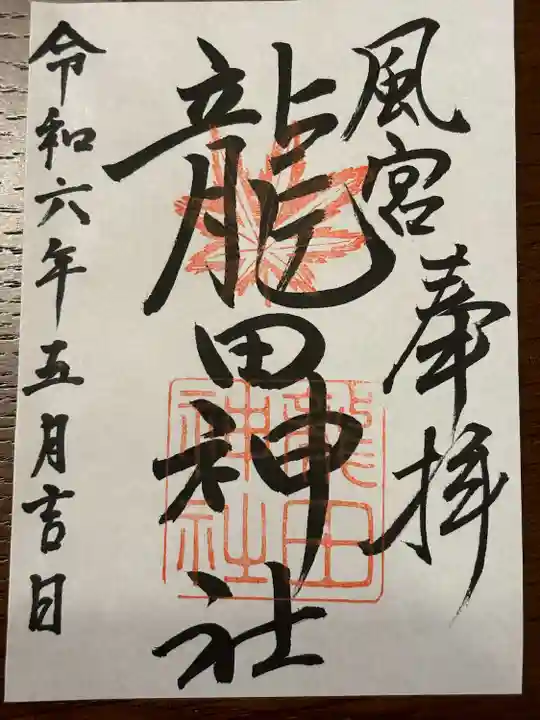 風宮奉拝
龍田神社
龍田
神社
令和六年五月吉日